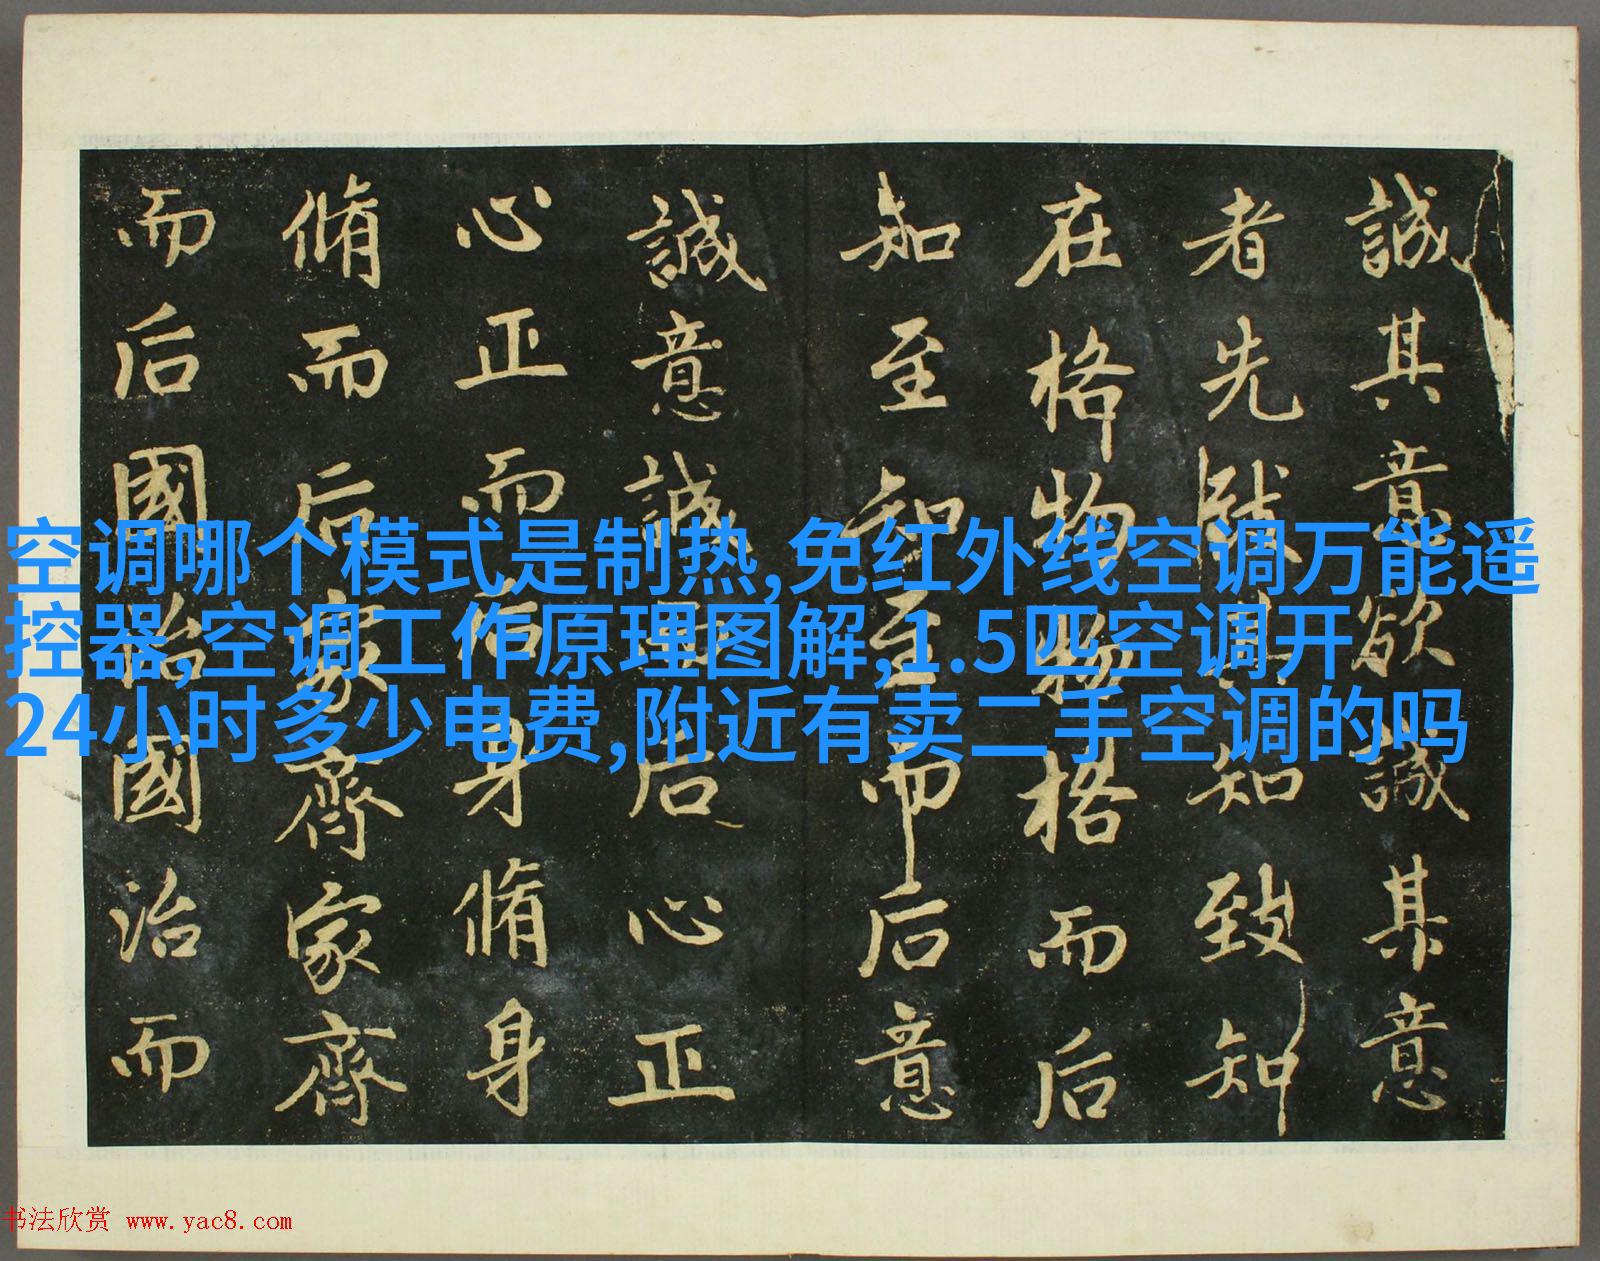 誠其意欲誠其意
者先致其知致知
在格物物格而后
知至知至而后意
誠意誠而后心正
心正而后身脩身
脩而后家齊家齊
而后國治國治而
空调哪个模式是制热,免红外线空调万能遥
控器,空调工作原理图解,1.5匹空调开
24小时多少电费,附近有卖二手空调的吗
书法欣赏 www.yac8.com